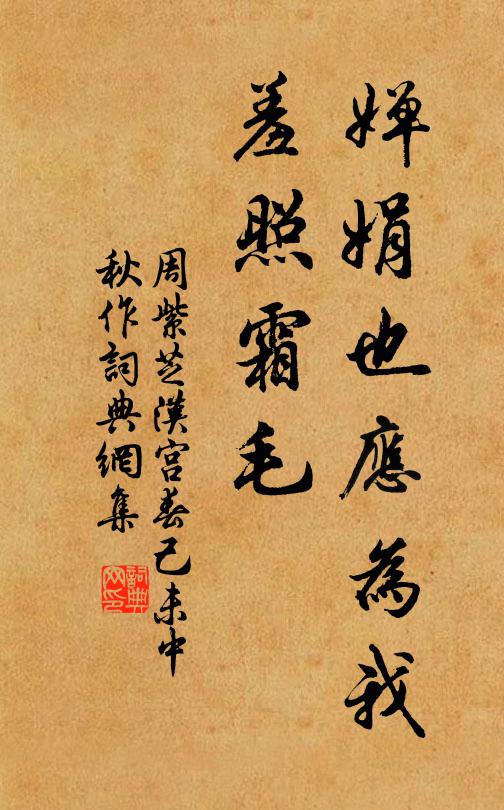 嬋娟也應為我
羞照霜毛
周紫芝漢宮春己未中
秋作詞典網集
詞典
网印